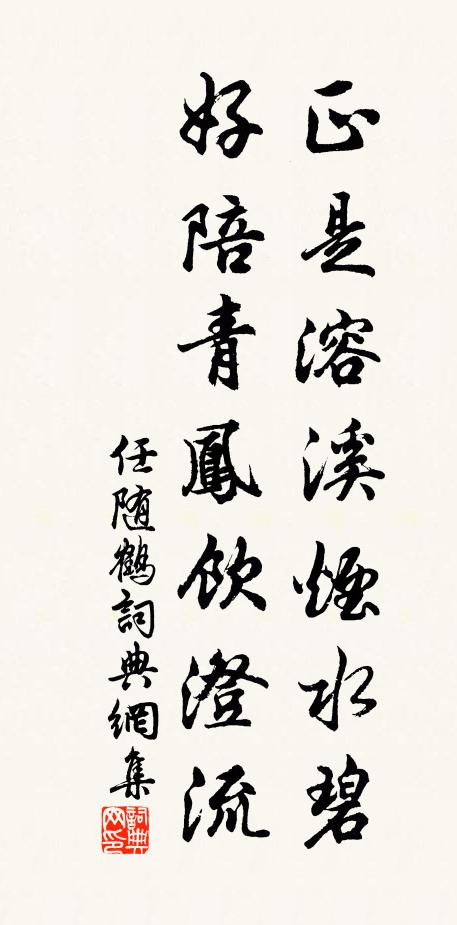 正是溶溪煙水碧
好陪青鳳飲澄流
任随鶴詞典網集
詞典网印